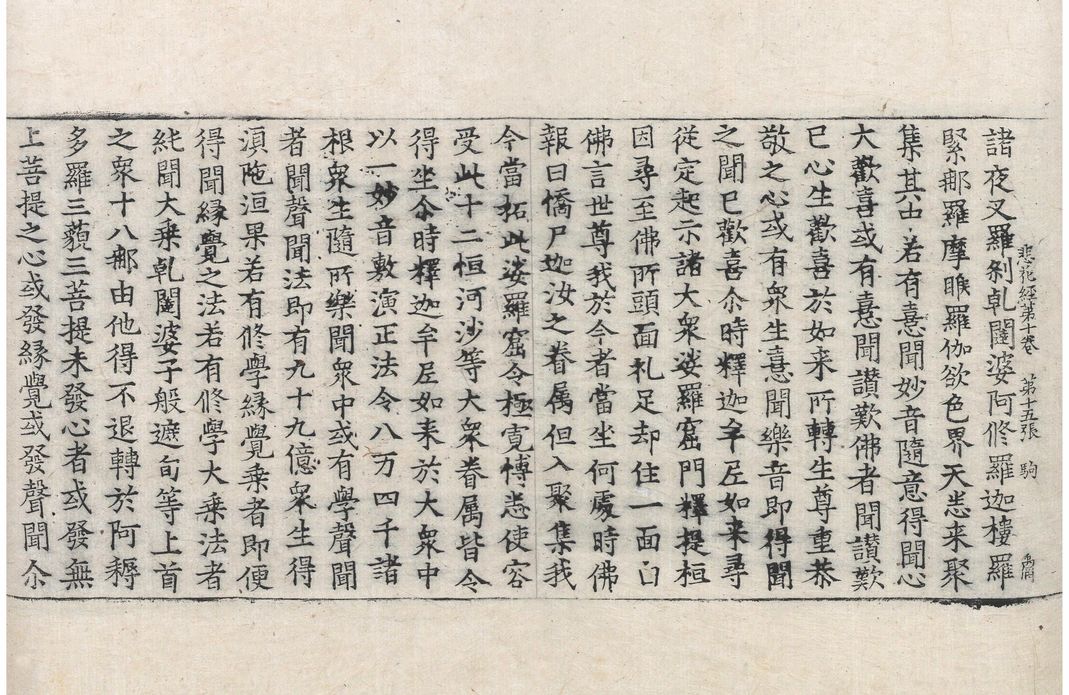 諸夜叉羅刹乹闥婆阿修羅迦樓羅
悲花經第十卷 第十五張 駒
緊那羅摩睺羅伽欲色界天悉来聚
集其中若有憙聞妙音隨意得聞心
大歡喜或有憙聞讃歎佛者聞讃歎
已心生歡喜於如来所轉生尊重恭
敬之心或有衆生憙聞樂音即得聞
之聞已歡喜尒時釋迦牟尼如来尋
從定起示諸大衆娑羅窟門釋提桓
因尋至佛所頭面礼足却住一面白
佛言世尊我於今者當坐何處時佛
報曰憍尸迦汝之眷属但入聚集我
今當拓此娑羅窟令極寬博悉使容
受此十二桓河沙等大衆眷属皆令
得坐尒時釋迦牟尼如来於大衆中
以一妙音敷演正法令八万四千諸
根衆生隨所樂聞衆中或有學聲聞
者聞聲聞法即有九十九億衆生得
湏陁洹果若有修學緣覺乗者即便
得聞縁覺之法若有修學大乗法者
純聞大乗乹闥婆子般遮旬等上首
之衆十八那由他得不退轉於阿耨
多羅三藐三菩提未發心者或發無
上菩提之心或發縁覺或發聲聞尒